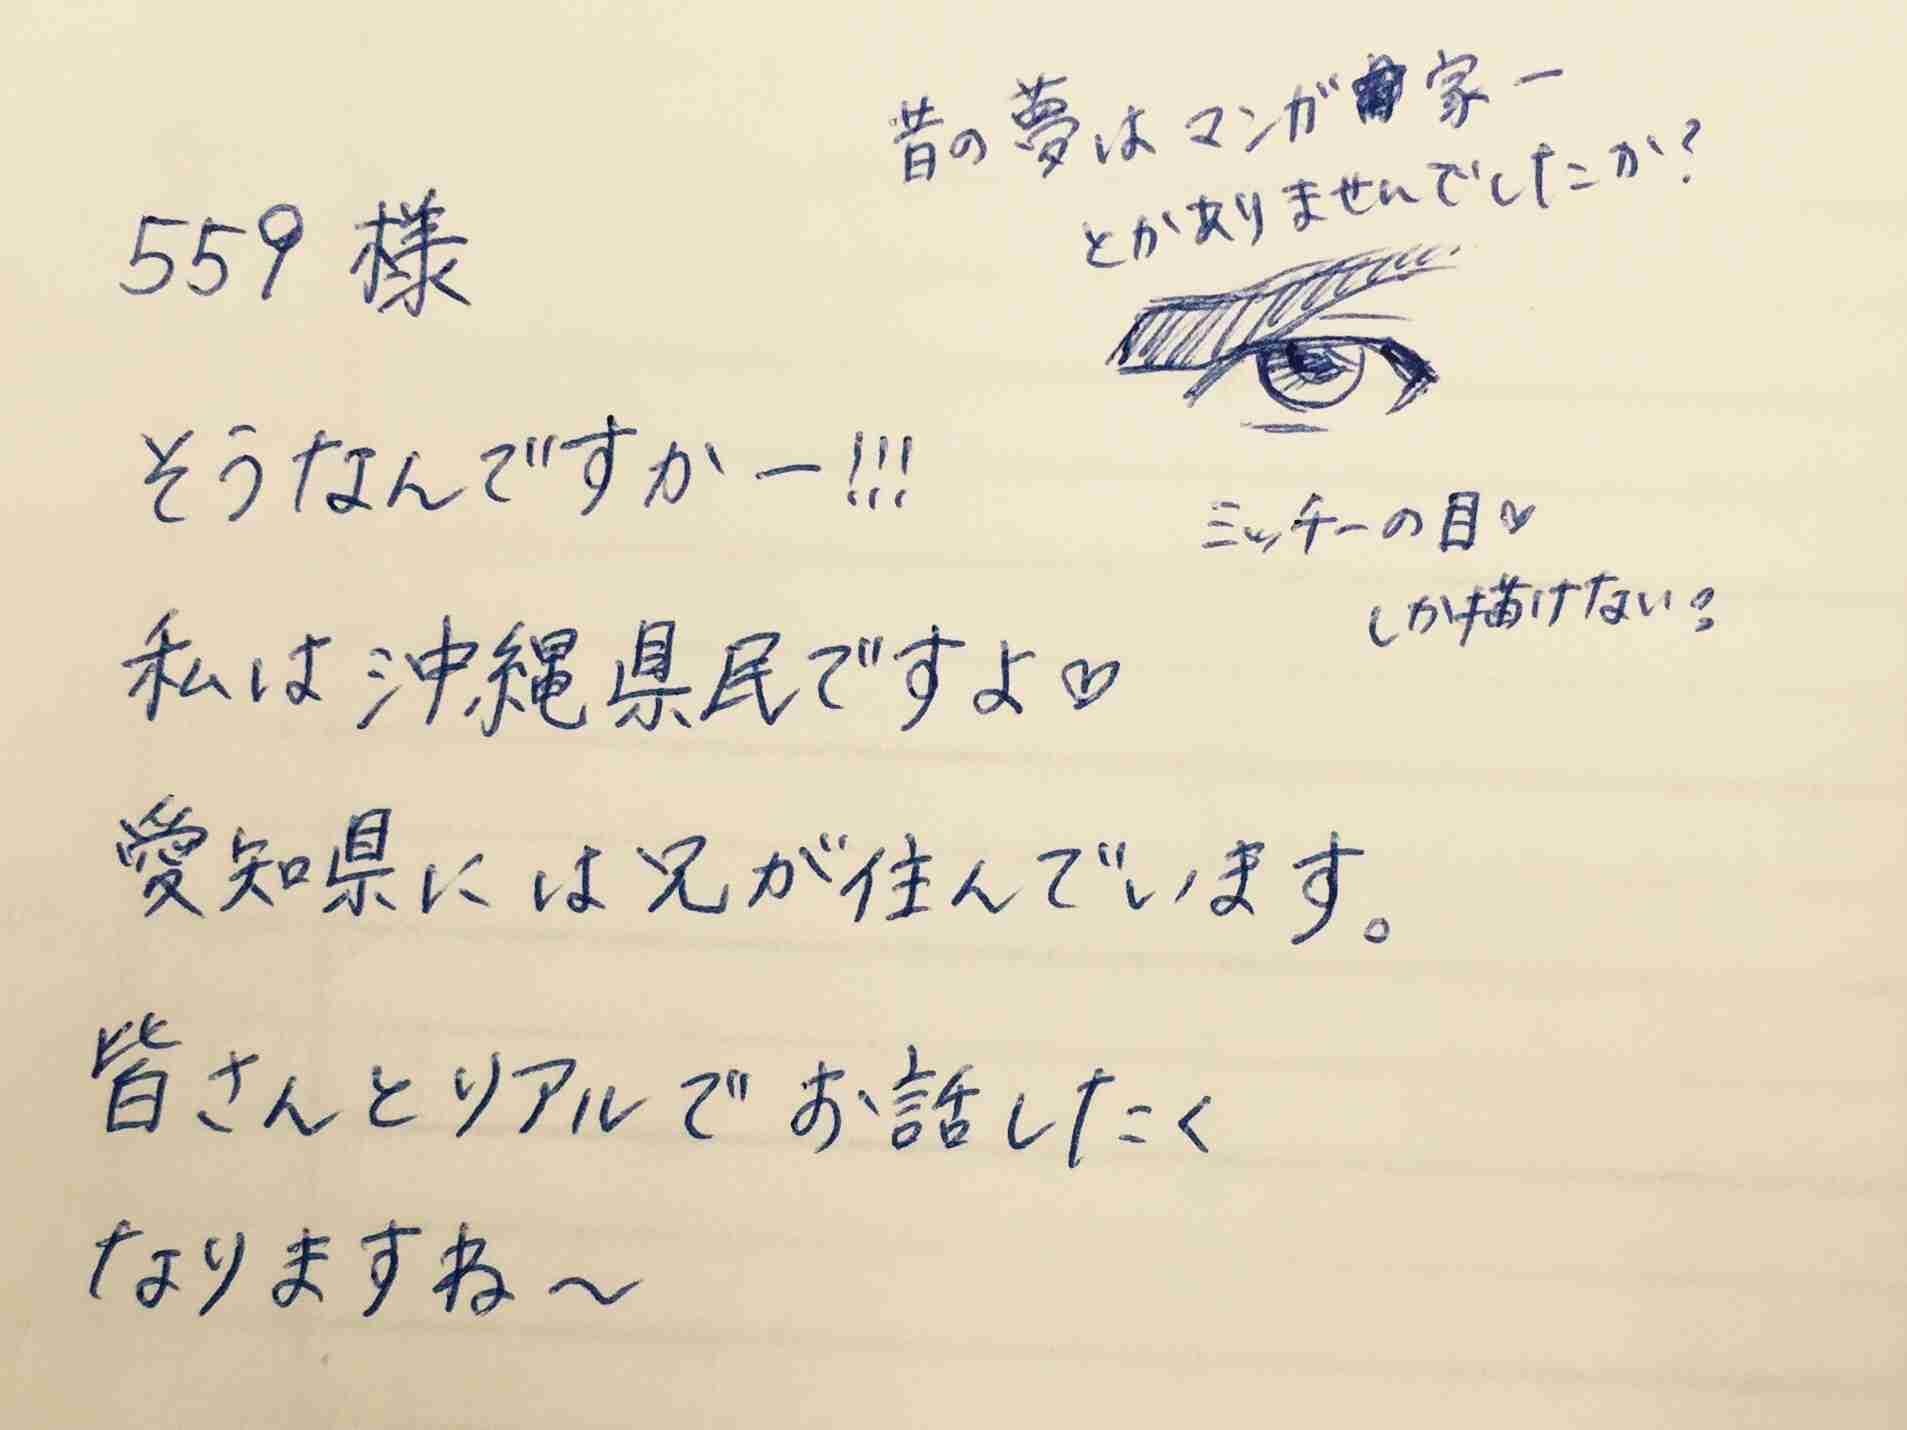 昔の夢はマンガ家ー
とかありませんでしたか?
559様
そうなんですかー!!!
ミッチーの目♡
しか描けない?
私は沖縄県民ですよ♡
愛知県には兄が住んでいます。
皆さんとリアルでお話したく
なりますね〜